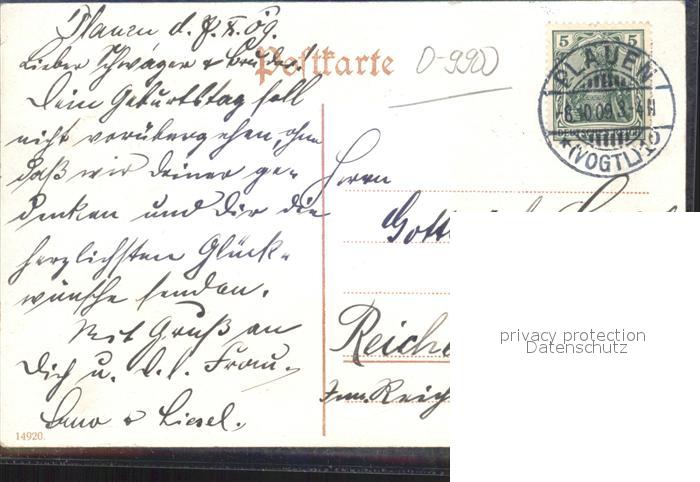 Plauen d. 7. X. 09.
Lieber Schwager & Bruder!
Dein Geburtstag soll
nicht vorübergehen, ohne
daß wir deiner ge-
denken und Dir die
herzlichsten Glück-
wünsche senden.
Mit Gruß an
Dich u. d. l. Frau
& Liesel.
14920.
Postkarte
0-9900
5 5
PLAUEN
(VOGTL)
Herrn
Gott
Reiche
privacy protection
Datenschutz